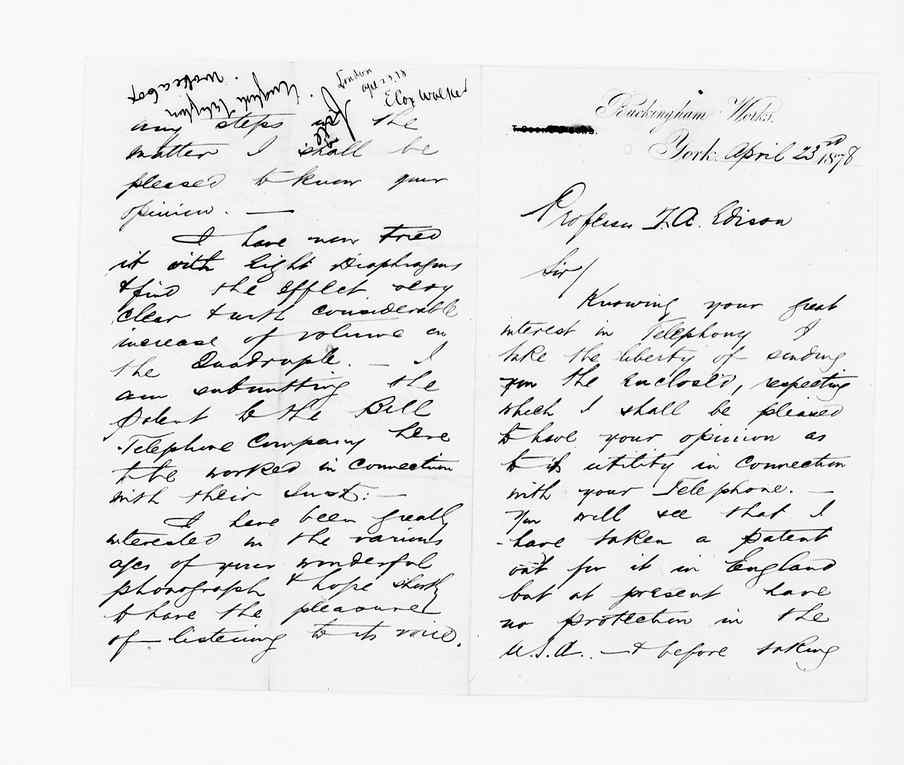 Buckingham Works.
York. April 23rd 1878
Professor T. A. Edison
Sir/
Knowing your great
interest in Telephony I
take the liberty of sending
you the enclosed, respecting
which I shall be pleased
to have your opinion as
to its utility in connection
with your Telephone. —
You will see that I
have taken a patent
out for it in England
but at present have
no protection in the
U.S.A.. — & before taking
London
Apl 23, 78
E Cox Walker
English Telephon
any steps in the
matter I shall be
pleased to know your
opinion. —
I have now tried
it with Eight Diaphragms
& find the effect very
clear & with considerable
increase of volume on
the Quadruple. — I
am submitting the
Patent to the Bell
Telephone Company here
to be worked in connection
with their Inst: —
I have been greatly
interested in the various
of your wonderful
phonograph & hope shortly
to have the pleasure
of listening to its voice.